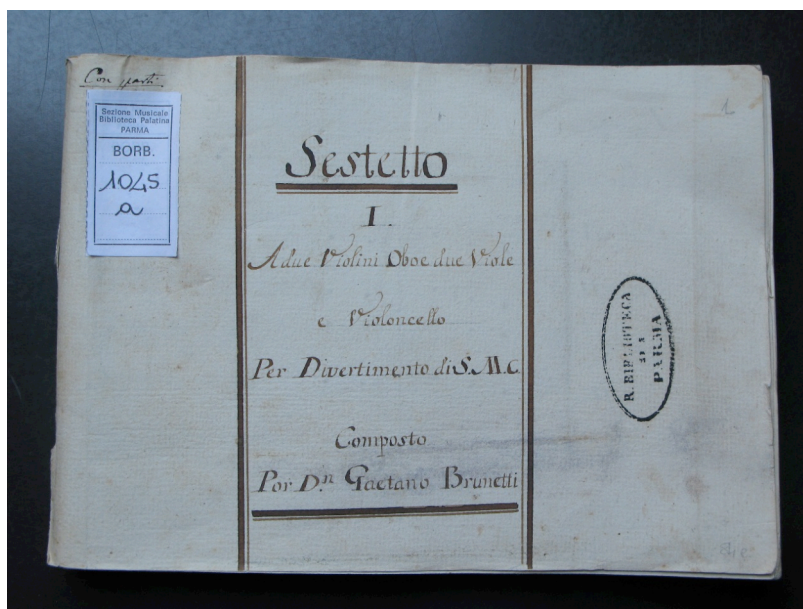 Con parti
Sezione Musicale
Biblioteca Palatina
PARMA
BORB.
1045
a
Sestetto
I.
A due Violini Oboe due Viole
e Violoncello
Per Divertimento di S. M. C.
Composto
Por D.n Gaetano Brunetti
1
R. BIBLIOTECA
DI
PARMA